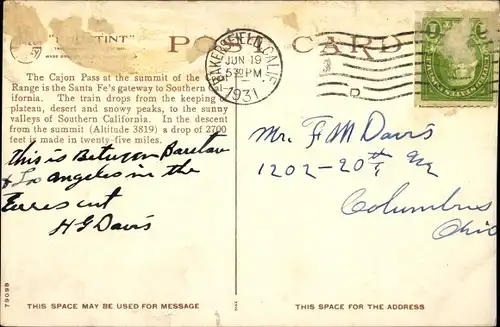 POST CARD
BAKERSFIELD, CALIF.
JUN 19
5 30 PM
1931
The Cajon Pass at the summit of the
Range is the Santa Fe's gateway to Southern Cal-
ifornia. The train drops from the keeping of
plateau, desert and snowy peaks, to the sunny
valleys of Southern California. In the descent
from the summit (Altitude 3819) a drop of 2700
feet is made in twenty-five miles.
this is Between Barstow
& Los angeles in the
H G Davis
Mr. F M Davis
1202-20th
Columbus
Ohio
79098
THIS SPACE MAY BE USED FOR MESSAGE
THIS SPACE IS FOR THE ADDRESS